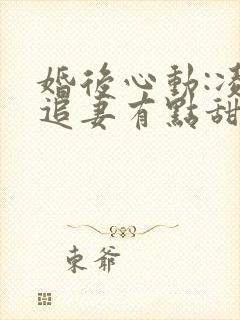 婚後心動:
追妻有點甜
東爺